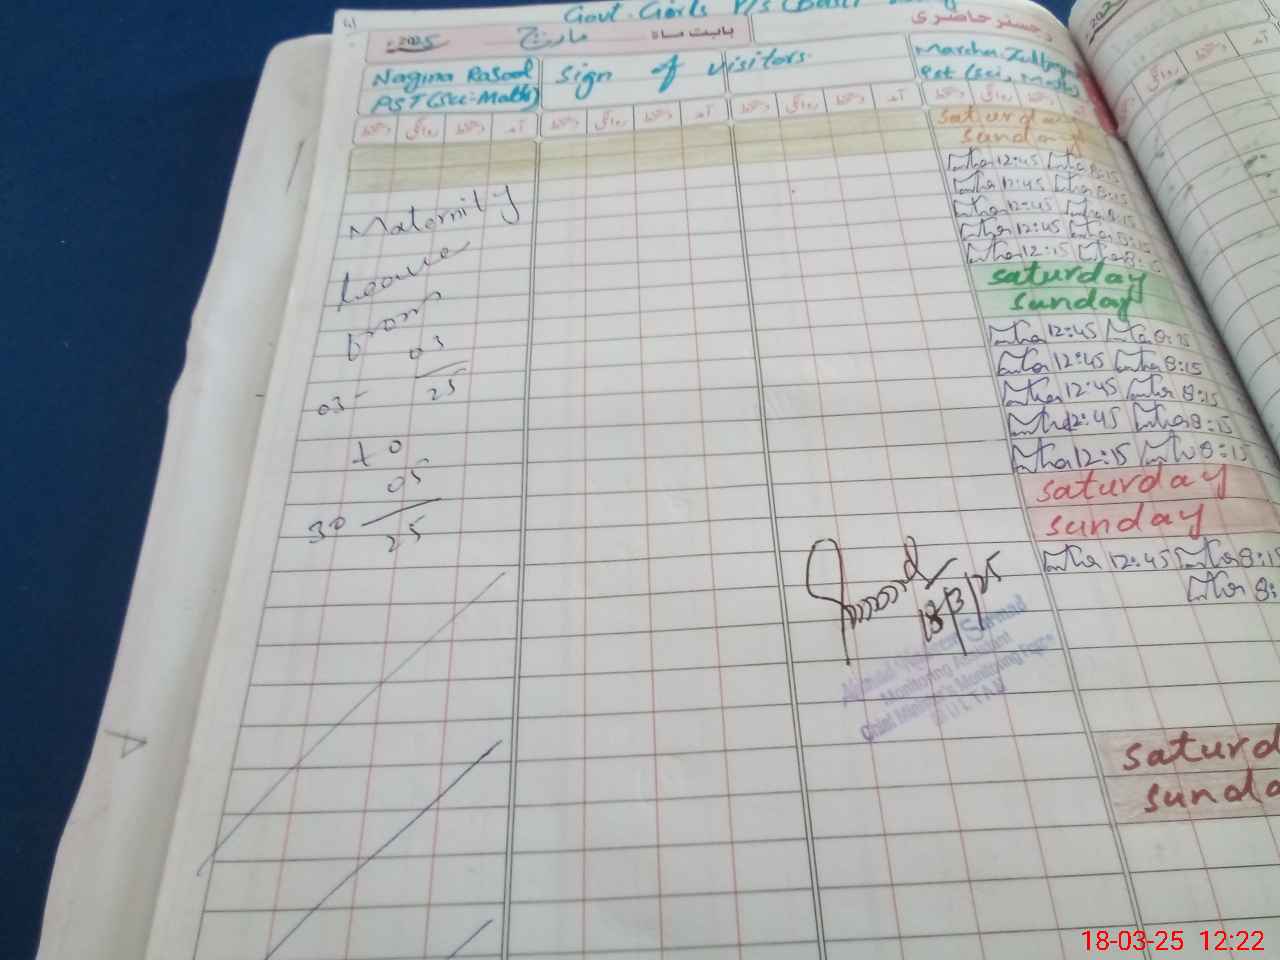 Govt. Girls P/S (Basti
رجسٹر حاضری
بابت ماہ مارچ 2025
Nagina Rasool
PST (Sci-Math)
Sign of visitors
PST (Sci, Math)
دستخط روانگی دستخط آمد دستخط روانگی دستخط آمد دستخط روانگی دستخط آمد دستخط روانگی دستخط
saturda
sunday
12:45 8:15
12:45 8:15
12:45 8:15
12:45 8:15
12:15 8:
saturday
sunday
12:45 8:15
12:45 8:15
12:45 8:15
12:45 8:15
12:15 8:15
saturday
sunday
12:45 8:15
8:
saturd
sunda
Maternity
Leave
from
03-03/25
to
30 05/25
18/3/25
Sarmad
Monitoring Assistant
Chief Minister's Monitoring Force
MULTAN
18-03-25 12:22